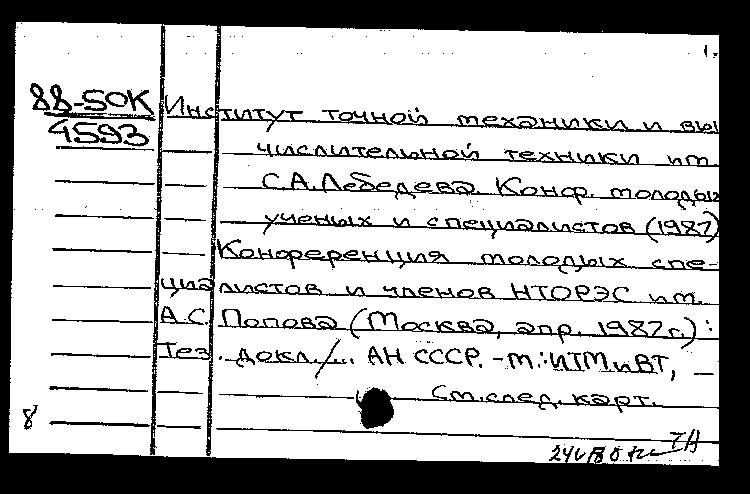 1.
88-50К Институт точной механики и вы
4593
числительной техники им.
С.А.Лебедева. Конф. молодых
ученых и специалистов (1987)
Конференция молодых спе-
циалистов и членов НТОРЭС им.
А.С. Попова (Москва, апр. 1987г.) :
Тез. докл./... АН СССР. -М.:ИТМиВТ, —
См.след.карт.
8
ТН